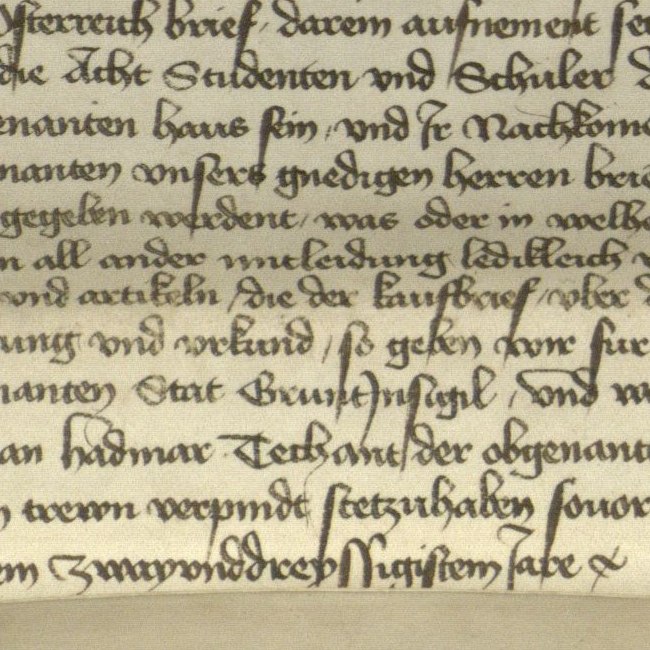 Osterreich brief, darem aufnement se
die Acht Studenten vnd Schuler d
enanten haus sein, vnd Jr Nachkome
nanten vnsers gnedigen herren brie
gegeben werdent, was oder in welhe
n all ander mitleidung ledikleich v
vnd artikeln, die der kaufbrief, vber d
ung vnd vrkund, so geben wir fur
nanten Stat Grunt Insigil, vnd w
an hadmar Techant der obgenant
n trewn verpindt stetzuhaben souor
em Zwayvnddreyssigistem Jare